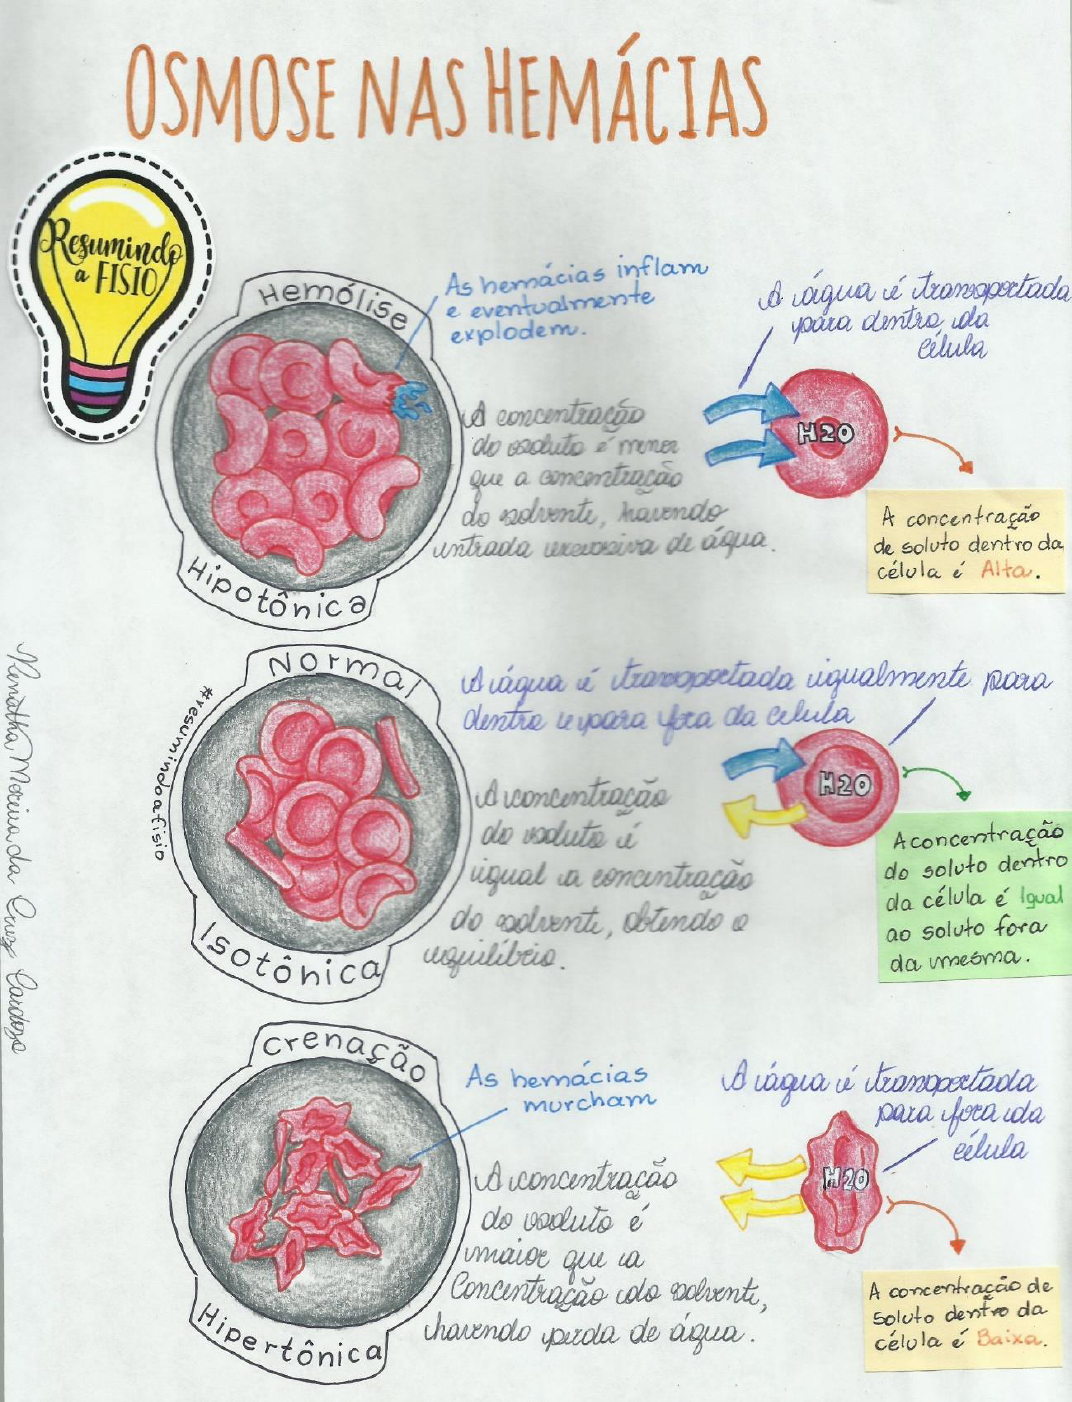 OSMOSE NAS HEMÁCIAS
Resumindo
a FISIO
Hemólise
Hipotônica
As hemácias inflam
e eventualmente
explodem.
A concentração
do soluto é menor
que a concentração
do solvente, havendo
entrada excessiva de água.
A água é transportada
para dentro da
célula
H2O
A concentração
de soluto dentro da
célula é Alta.
Normal
Isotônica
#resumindoafisio
A água é transportada igualmente para
dentro e para fora da célula
A concentração
do soluto é
igual a concentração
do solvente, obtendo o
equilíbrio.
H2O
A concentração
do soluto dentro
da célula é Igual
ao soluto fora
da mesma.
Crenação
Hipertônica
As hemácias
murcham
A concentração
do soluto é
maior que a
Concentração do solvente,
havendo perda de água.
A água é transportada
para fora da
célula
H2O
A concentração de
soluto dentro da
célula é Baixa.
Renatha Moreira da Cruz Cardozo